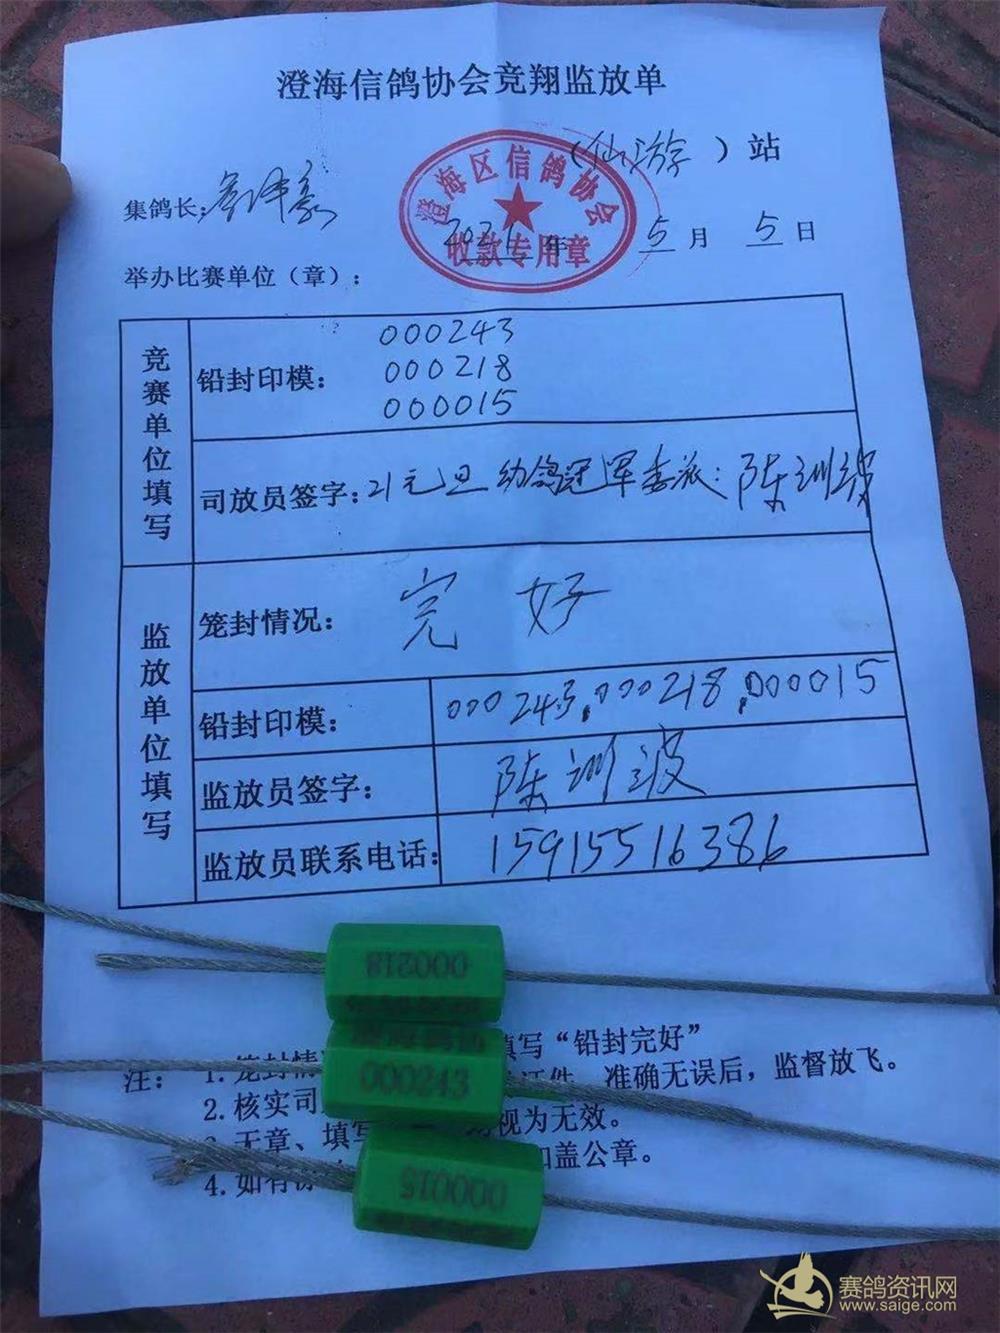 澄海信鸽协会竞翔监放单
(仙游)站
澄海区信鸽协会
收款专用章
集鸽长:
2021年5月5日
举办比赛单位(章):
竞赛单位填写
铅封印模:
000243
000218
000015
司放员签字:21元旦幼鸽冠军委派:陈训波
监放单位填写
笼封情况:完好
铅封印模:000243,000218,000015
监放员签字:陈训波
监放员联系电话:15915516386
000218
000243
000015
注:
1.笼封情 填写“铅封完好”
2.核实司 证件,准确无误后,监督放飞。
无章、填写 视为无效。
4.如有 加盖公章。
赛鸽资讯网
www.saige.com